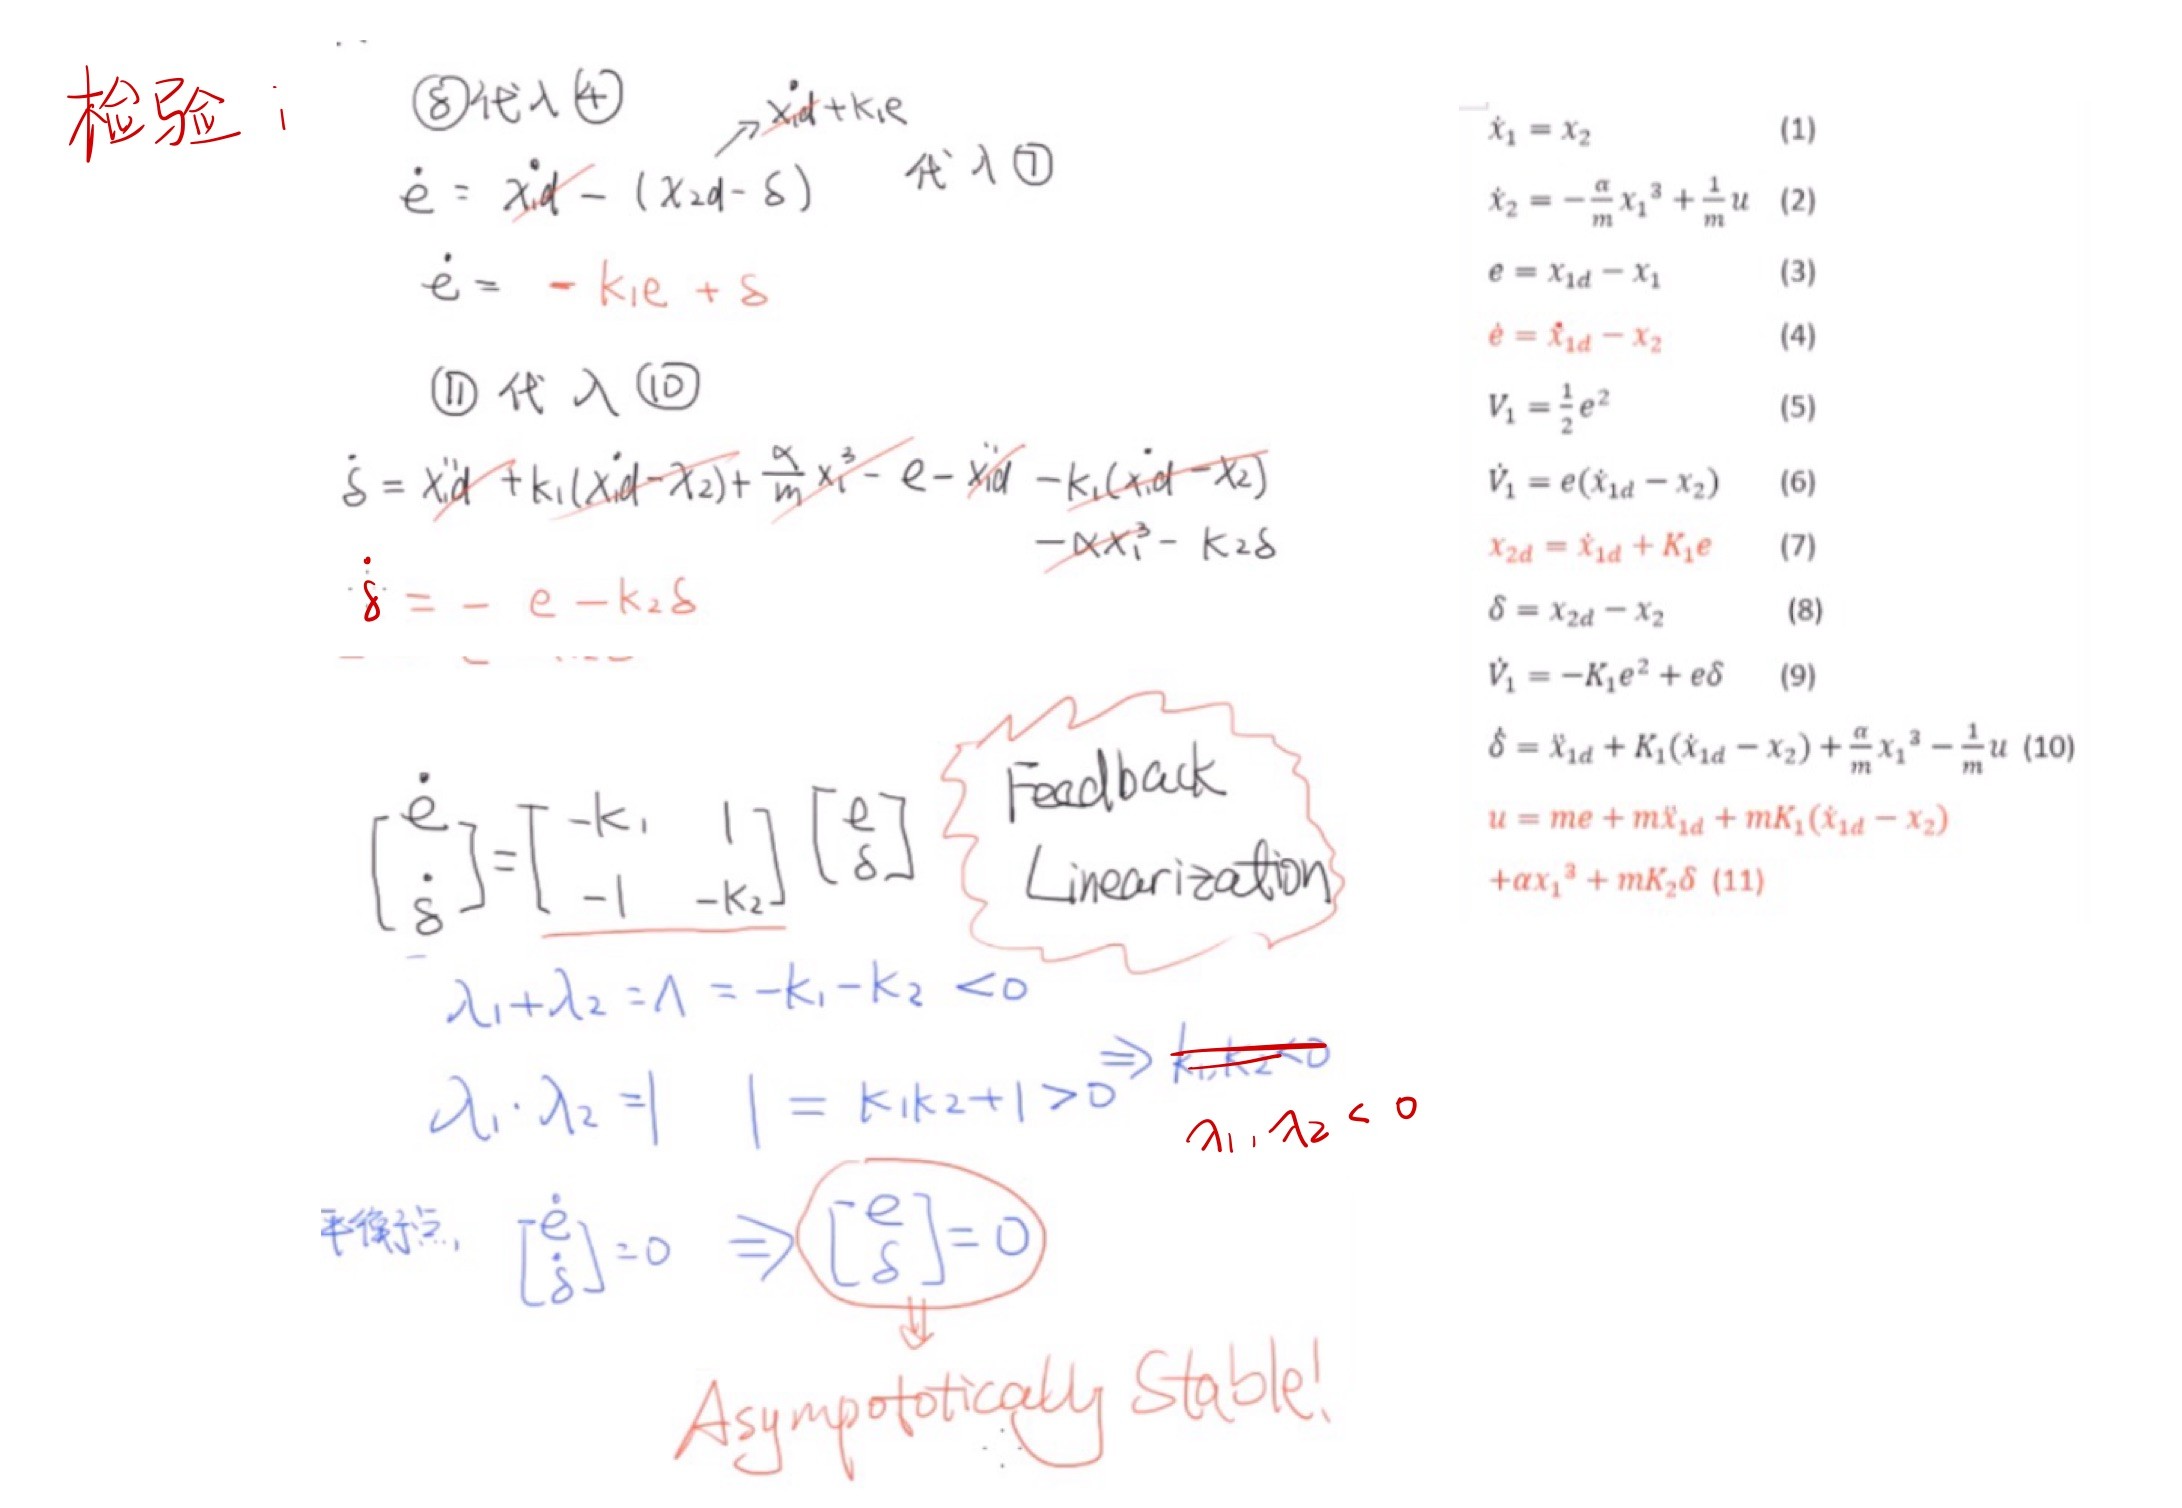 检验：
⑧代入④
ẋ1d+k1e
ė = ẋ1d - (x2d - δ) 代入⑦
ė = - k1e + δ
⑪代入⑩
δ̇ = ẍ1d + k1(ẋ1d - x2) + α/m x1³ - e - ẍ1d - k1(ẋ1d - x2)
- αx1³ - k2δ
δ̇ = - e - k2δ
[ė δ̇] = [-k1 1 -1 -k2] [e δ]
Feedback
Linearization
λ1+λ2 = Λ = -k1-k2 <0
λ1·λ2 = | | = k1k2+1 >0 ⇒ k1,k2<0
λ1,λ2 < 0
平衡点, [ė δ̇] = 0 ⇒ [e δ] = 0
⇓
Asympototically Stable!
ẋ₁ = x₂ (1)
ẋ₂ = -α/m x₁³ + 1/m u (2)
e = x₁d − x₁ (3)
ė = ẋ₁d − x₂ (4)
V₁ = 1/2 e² (5)
V̇₁ = e(ẋ₁d − x₂) (6)
x₂d = ẋ₁d + K₁e (7)
δ = x₂d − x₂ (8)
V̇₁ = −K₁e² + eδ (9)
δ̇ = ẍ₁d + K₁(ẋ₁d − x₂) + α/m x₁³ − 1/m u (10)
u = me + mẍ₁d + mK₁(ẋ₁d − x₂)
+αx₁³ + mK₂δ (11)